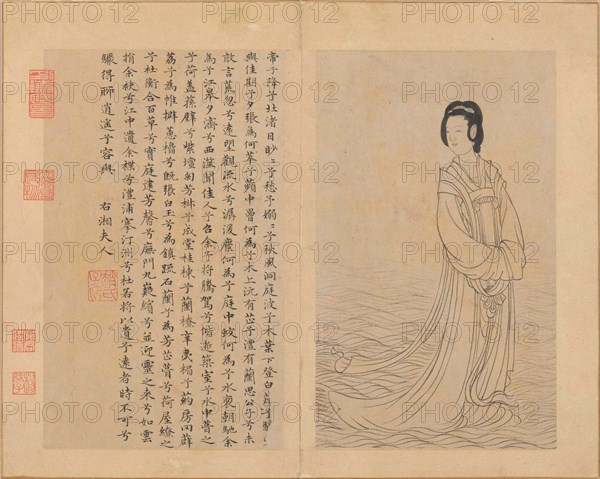 帝子降兮北渚目眇〻兮愁予嫋〻兮秋風洞庭波兮木葉下登白薠兮騁
與佳期兮夕張鳥何萃兮蘋中罾何為兮木上沅有芷兮澧有蘭思公子兮未
敢言荒忽兮遠望觀流水兮潺湲麋何為兮庭中蛟何為兮水裔朝馳余
馬兮江皋夕濟兮西澨聞佳人兮召余將騰駕兮偕逝築室兮水中葺之
兮荷蓋蓀壁兮紫壇匊芳椒兮成堂桂棟兮蘭橑辛夷楣兮葯房罔薜
荔兮為帷擗蕙櫋兮既張白玉兮為鎮疏石蘭兮為芳芷葺兮荷屋繚之
兮杜衡合百草兮實庭建芳馨兮廡門九嶷繽兮並迎靈之來兮如雲
捐余袂兮江中遺余褋兮澧浦搴汀洲兮杜若將以遺兮遠者時不可兮
驟得聊逍遙兮容與 右湘夫人
PHOTO12